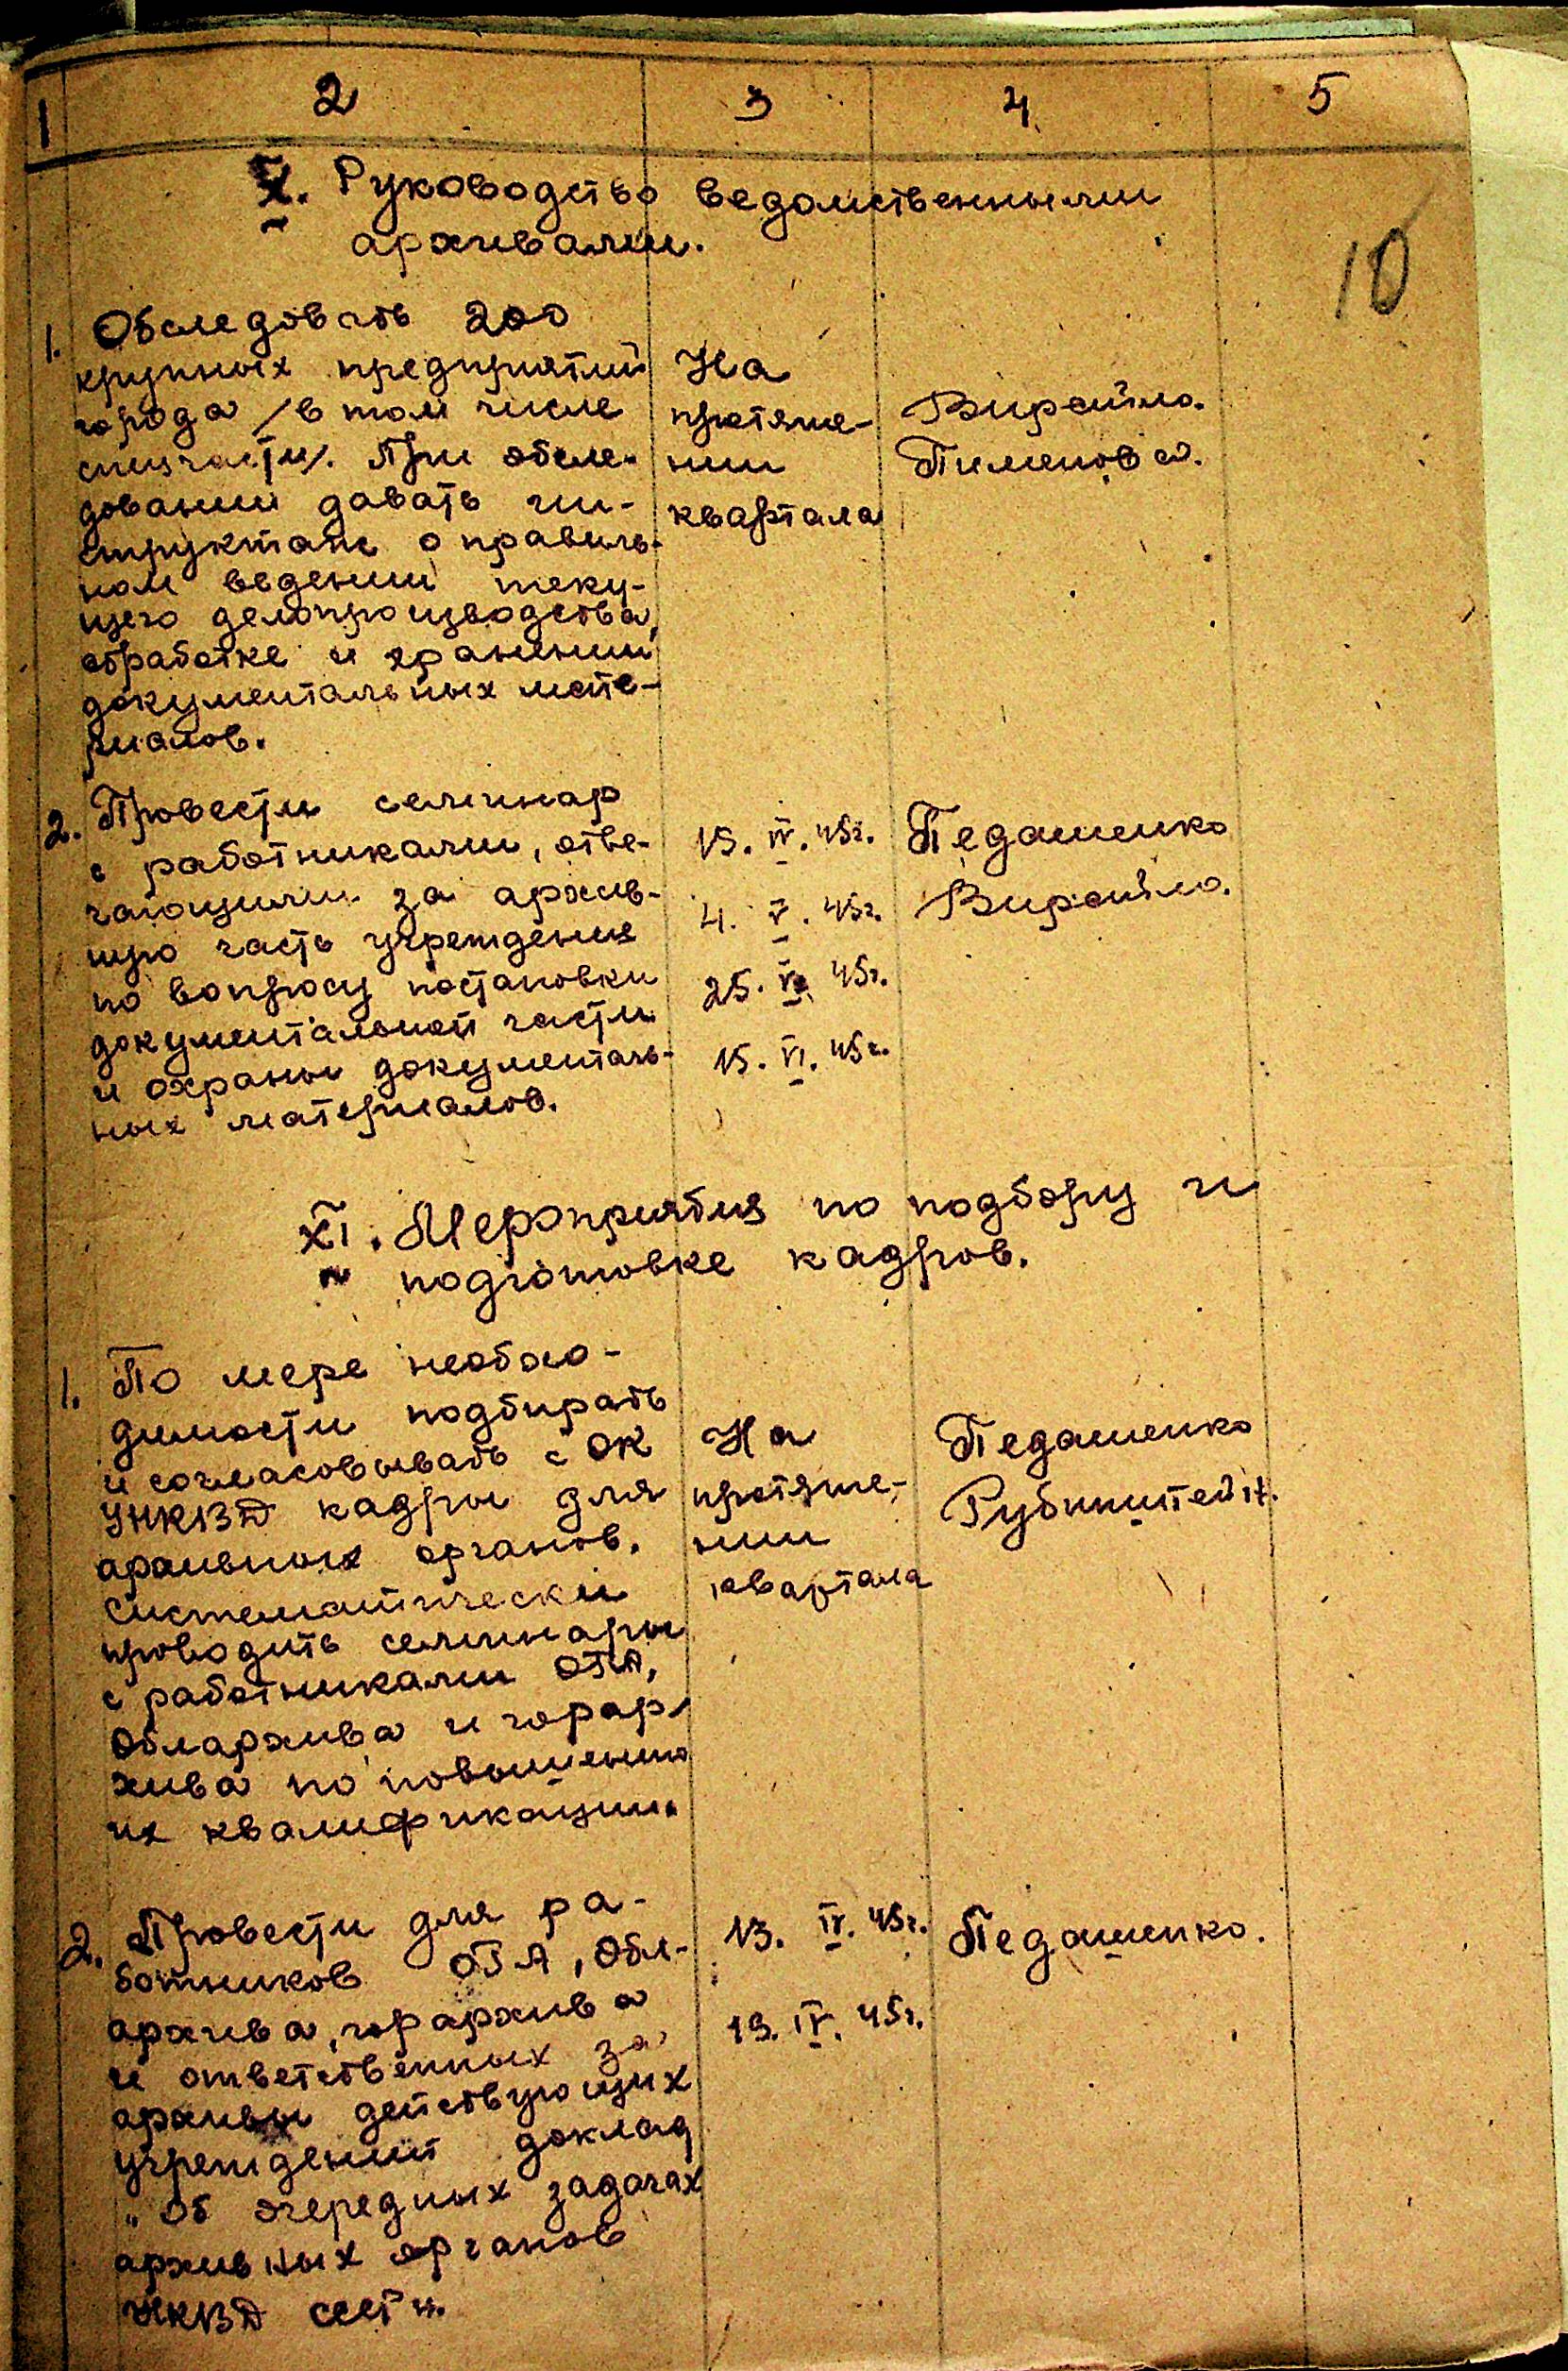 1 2 3 4 5
X. Руководство ведомственными
архивами.
10
1. Обследовать 200
крупных предприятий
города /в том числе
спецчасти/. При обсле-
довании давать ин-
структаж о правиль-
ном ведении теку-
щего делопроизводства,
обработке и хранении
документальных мате-
риалов.
На
протяже-
нии
квартала
Пименова.
2. Провести семинар
с работниками, отве-
чающими за архив-
ную часть учреждения
по вопросу постановки
документальной части
и охраны документаль-
ных материалов.
15. IV. 45г.
4. V. 45г.
25. V. 45г.
15. VI. 45г.
Педашенко
XI. Мероприятия по подбору и
подготовке кадров.
1. По мере необхо-
димости подбирать
и согласовывать с ОК
УНКВД кадры для
архивных органов.
Систематически
проводить семинары
с работниками ОГА,
Облархива и горар-
хива по повышению
их квалификации.
На
протяже-
нии
квартала
Педашенко
Рубинштейн.
2. Провести для ра-
ботников ОГА, Обл-
архива, горархива
и ответственных за
архивы действующих
учреждений доклад
„Об очередных задачах
архивных органов
НКВД
13. IV. 45г.
19. IV. 45г.
Педашенко.